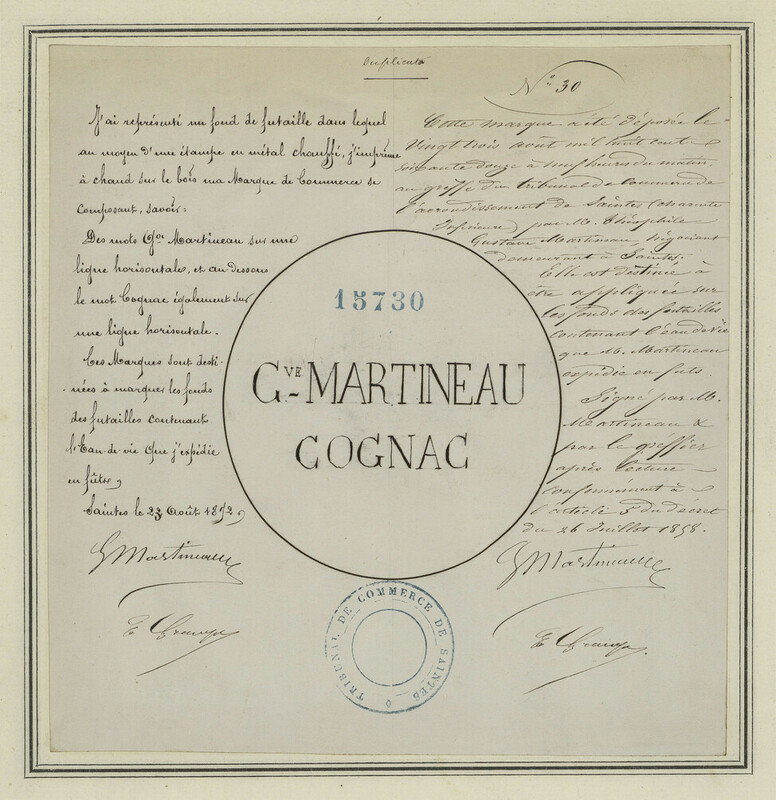 Duplicata
J'ai représenté un fond de futaille dans lequel
au moyen d'une étampe en métal chauffé, j'imprime
à chaud sur le bois ma Marque de Commerce se
composant, savoir=
Des mots Gve Martineau sur une
ligne horisontale, et au-dessous
le mot Cognac également sur
une ligne horisontale.
Ces Marques sont desti-
-nées à marquer les fonds
des futailles contenant
l'Eau-de-vie que j'expédie
en fûts,
Saintes le 23 Août 1872,
GMartineau
N° 30
Cette marque a été déposée le
Vingt trois août mil huit cent
soixante douze à neuf heures du matin,
au greffe du tribunal de commerce de
l'arrondissement de Saintes (Charente
Inférieure) par M. Théophile
Gustave Martineau, négociant
demeurant à Saintes.
Elle est destinée à
être appliquée sur
les fonds des futailles
contenant l'eau de vie
que M. Martineau
expédie en futs.
Signé par M.
Martineau &
par le greffier
après lecture
conformément à
l'article 5 du décret
du 26 Juillet 1858.
GMartineau
15730
GVE MARTINEAU
COGNAC
TRIBUNAL DE COMMERCE DE SAINTES